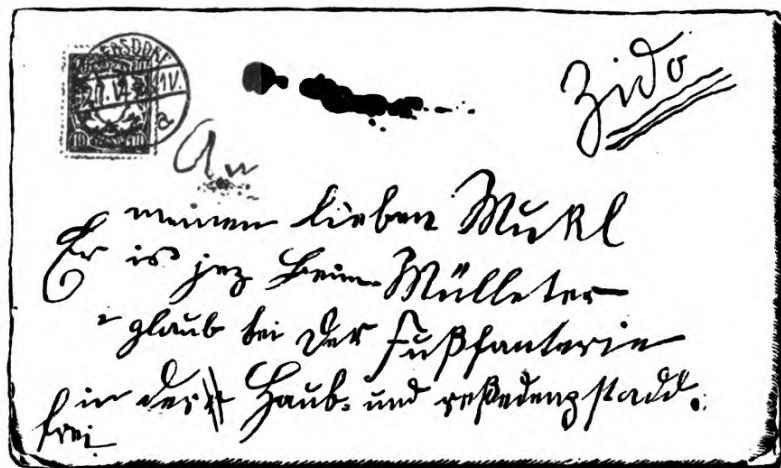 ERSDORF
Zido
An
meinen lieben Mukl
Er is jez beim Mülleter
i glaub bei der Fußfanterie
in der Haub- und reßedenzstadd.
frei